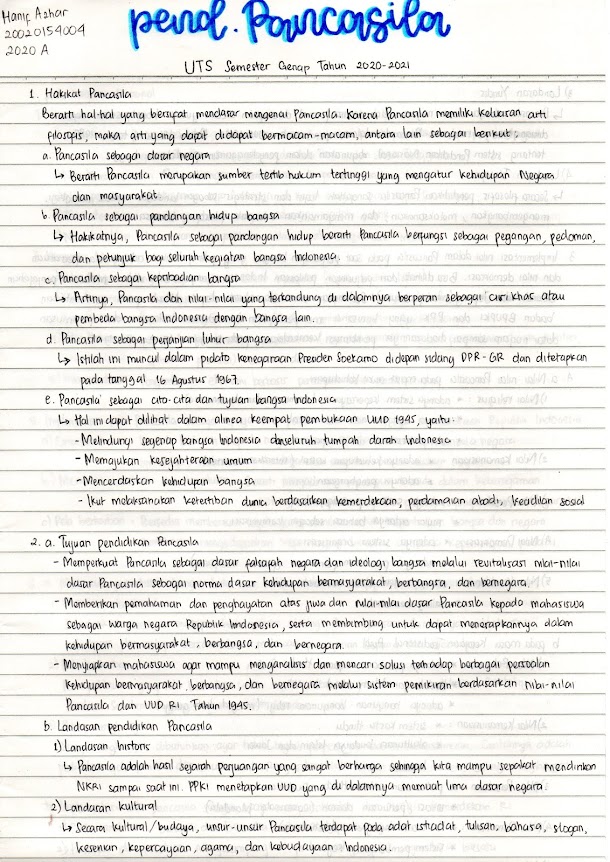 Hanif Azhar
20020154004
2020 A
pend. Pancasila
UTS Semester Genap Tahun 2020-2021
1. Hakikat Pancasila
Berarti hal-hal yang bersifat mendasar mengenai Pancasila. Karena Pancasila memiliki keluasan arti
filosofis, maka arti yang dapat didapat bermacam-macam, antara lain sebagai berikut :
a. Pancasila sebagai dasar negara
↳ Berarti Pancasila merupakan sumber tertib hukum tertinggi yang mengatur kehidupan Negara
dan masyarakat
b. Pancasila sebagai pandangan hidup bangsa
↳ Hakikatnya, Pancasila sebagai pandangan hidup berarti Pancasila berfungsi sebagai pegangan, pedoman,
dan petunjuk bagi seluruh kegiatan bangsa Indonesia.
c. Pancasila sebagai kepribadian bangsa
↳ Artinya, Pancasila dan nilai-nilai yang terkandung di dalamnya berperan sebagai ciri khas atau
pembeda bangsa Indonesia dengan bangsa lain.
d. Pancasila sebagai perjanjian luhur bangsa
↳ Istilah ini muncul dalam pidato kenegaraan Presiden Soekarno didepan sidang DPR-GR dan ditetapkan
pada tanggal 16 Agustus 1967.
e. Pancasila sebagai cita-cita dan tujuan bangsa Indonesia
↳ Hal ini dapat dilihat dalam alinea keempat pembukaan UUD 1945, yaitu.
- Melindungi segenap bangsa Indonesia dan seluruh tumpah darah Indonesia
- Memajukan kesejahteraan umum
- Mencerdaskan kehidupan bangsa
- Ikut melaksanakan ketertiban dunia berdasarkan kemerdekaan, perdamaian abadi, keadilan sosial
2. a. Tujuan pendidikan Pancasila
- Memperkuat Pancasila sebagai dasar falsafah negara dan ideologi bangsa melalui revitalisasi nilai-nilai
dasar Pancasila sebagai norma dasar kehidupan bermasyarakat, berbangsa, dan bernegara.
- Memberikan pemahaman dan penghayatan atas jiwa dan nilai-nilai dasar Pancasila kepada mahasiswa
sebagai warga negara Republik Indonesia, serta membimbing untuk dapat menerapkannya dalam
kehidupan bermasyarakat, berbangsa, dan bernegara.
- Menyiapkan mahasiswa agar mampu menganalisis dan mencari solusi terhadap berbagai persoalan
kehidupan bermasyarakat, berbangsa, dan bernegara melalui sistem pemikiran berdasarkan nilai-nilai
Pancasila dan UUD RI Tahun 1945.
b. Landasan pendidikan Pancasila
1) Landasan historis
↳ Pancasila adalah hasil sejarah perjuangan yang sangat berharga sehingga kita mampu sepakat mendirikan
NKRI sampai saat ini. PPKI menetapkan UUD yang di dalamnya memuat lima dasar negara.
2) Landasan kultural
↳ Secara kultural/budaya, unsur-unsur Pancasila terdapat pada adat istiadat, tulisan, bahasa, slogan,
kesenian, kepercayaan, agama, dan kebudayaan Indonesia.